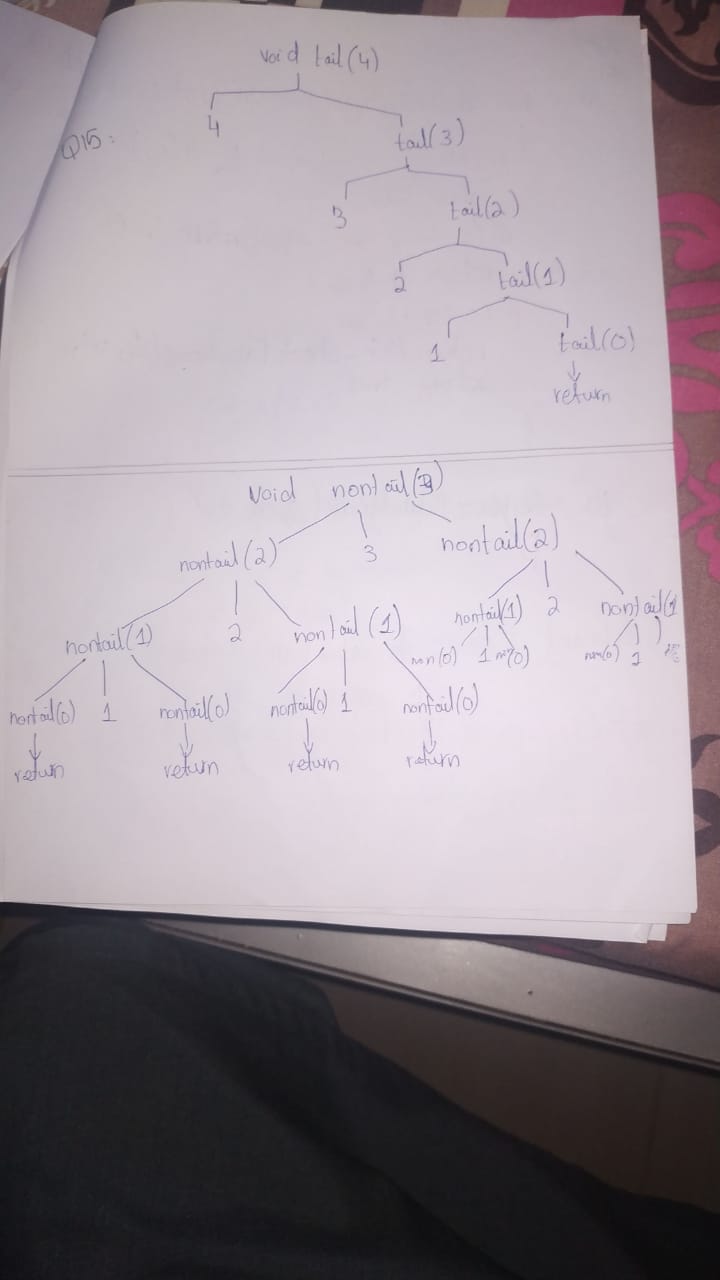 void tail(4)
Q15:
4 tail(3)
3 tail(2)
2 tail(1)
1 tail(0)
return
void nontail(3)
nontail(2) 3 nontail(2)
nontail(1) 2 nontail(1) nontail(1) 2 nontail(1
non(0) 1 non(0) 1
nontail(0) 1 nontail(0) nontail(0) 1 nontail(0)
return return return return